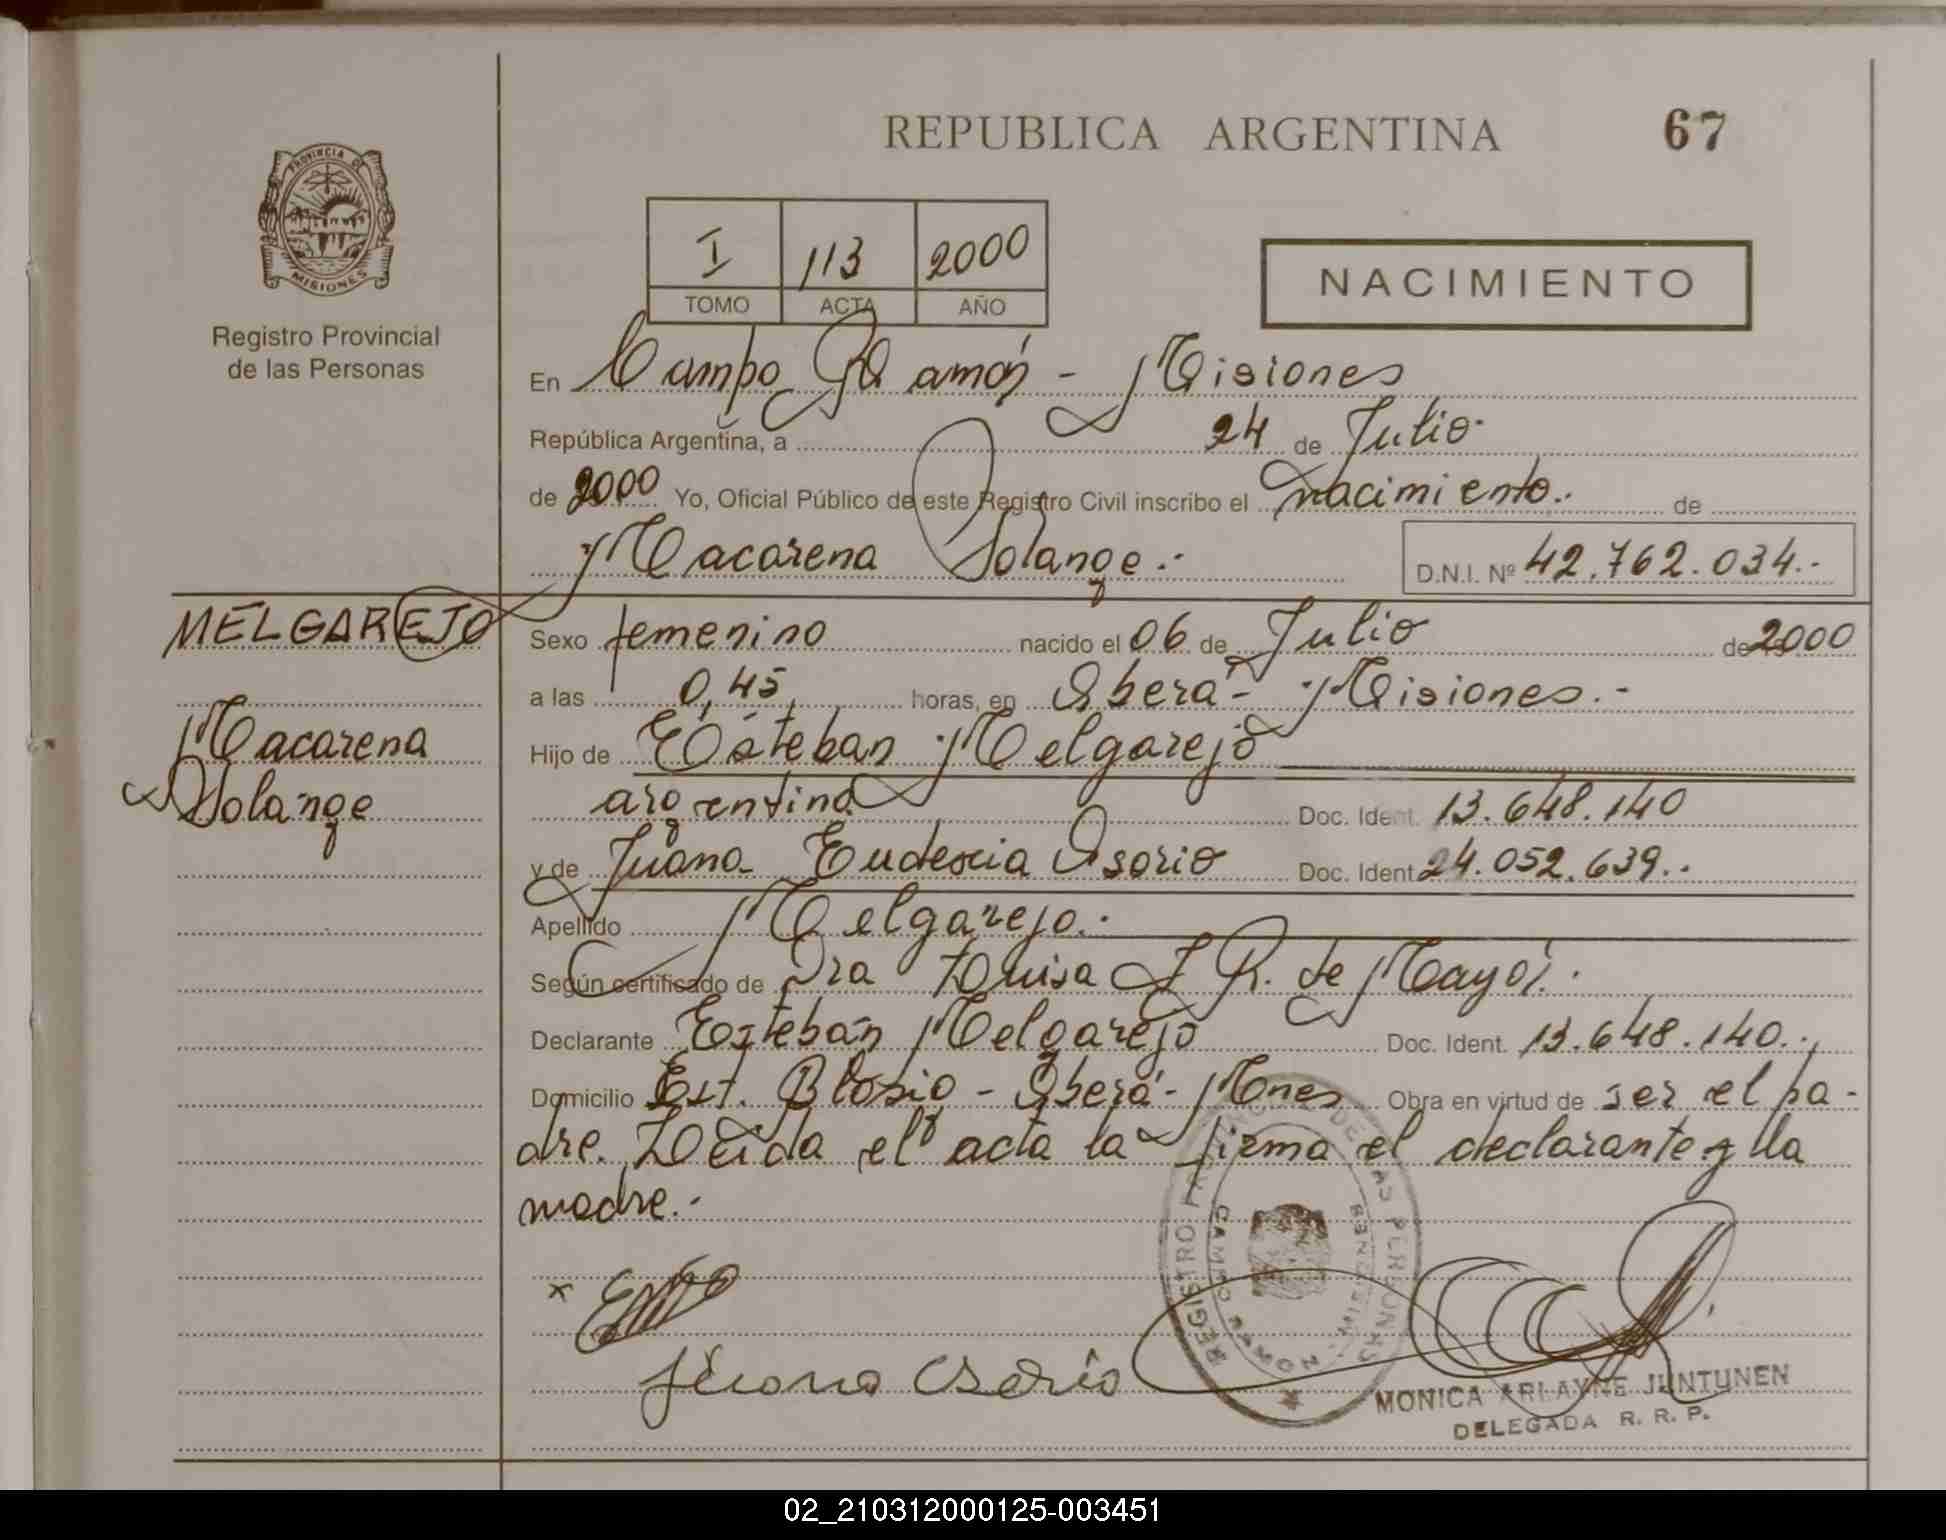 REPUBLICA ARGENTINA 67
PROVINCIA DE
MISIONES
Registro Provincial
de las Personas
I 113 2000
TOMO ACTA AÑO
NACIMIENTO
En Campo Ramón - Misiones
República Argentina, a 24 de Julio
de 2000 Yo, Oficial Público de este Registro Civil inscribo el nacimiento.. de
Macarena Solange.-
D.N.I. Nº 42.762.034..
MELGAREJO
Macarena
Solange
Sexo femenino nacido el 06 de Julio de 2000
a las 0,45, horas, en Oberá - Misiones.-
Hijo de Esteban Melgarejo
argentina Doc. Ident. 13.648.140
y de Juana Eudosia Osorio Doc. Ident 24.052.639..
Apellido Melgarejo.
Según certificado de Dra Luisa J R. de Mayol.
Declarante Esteban Melgarejo Doc. Ident. 13.648.140..
Domicilio Est. Blosio - Oberá - Mnes Obra en virtud de ser el pa-
dre. Leída el acta la firma el declarante y la
madre.-
x
Juana Osorio
REGISTRO PROVINCIAL DE LAS PERSONAS
CAMPO RAMON - MISIONES
MONICA ARLAYNE JUNTUNEN
DELEGADA R. R. P.
02_210312000125-003451